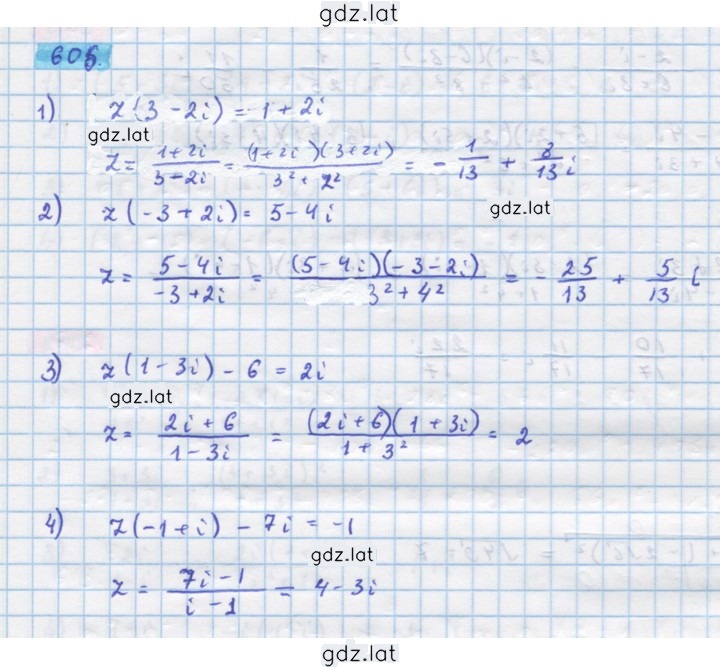 gdz.lat
605.
1) z(3-2i) = 1+2i
gdz.lat
z = \frac{1+2i}{3-2i} = \frac{(1+2i)(3+2i)}{3^2+2^2} = -\frac{1}{13} + \frac{8}{13}i
2) z(-3+2i) = 5-4i
gdz.lat
z = \frac{5-4i}{-3+2i} = \frac{(5-4i)(-3-2i)}{3^2+4^2} = -\frac{25}{13} + \frac{5}{13}i
3) z(1-3i) - 6 = 2i
gdz.lat
z = \frac{2i+6}{1-3i} = \frac{(2i+6)(1+3i)}{1+3^2} = 2
4) z(-1+i) - 7i = -1
gdz.lat
z = \frac{7i-1}{i-1} = 4-3i
gdz.lat